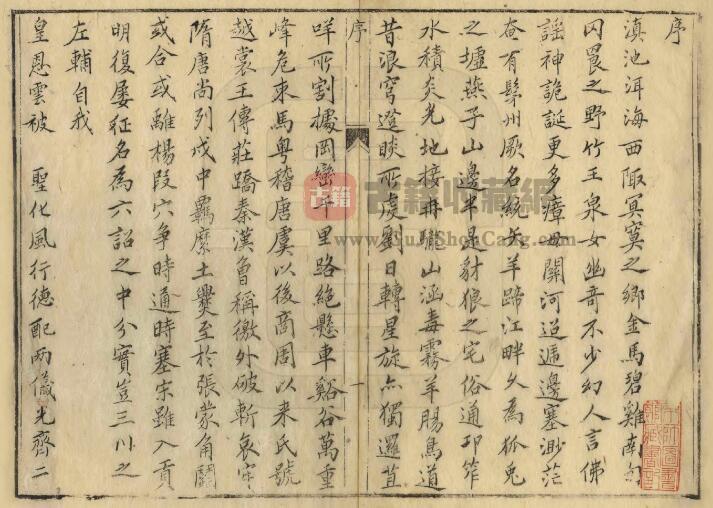 序
滇池洱海西陬冥寞之鄉金馬碧雞南勾
冈罠之野竹王泉女幽奇不少幻人言佛
謡神詭誕更多瘴母關河迢遞邊塞渺茫
奄有髳州厥名統矢羊蹄江畔久為狐兎
之墟燕子山邊半是豺狼之宅俗通邛筰
水積炎光地接冉駹山涵毒霧羊腸鳥道
昔浪穹邆睒所虔劉日轉星旋亦獨邏苴
序
一
咩所割據岡巒千里路絶懸車谿谷萬重
峰危束馬粤稽唐虞以後商周以来氏號
越裳王傳莊蹻秦漢曾稱徼外破斬哀牢
隋唐尚列戎中羈縻土爨至於張蒙角鬭
或合或離楊段穴争時通時塞宋雖入貢
明復屡征名為六詔之中分實豈三川之
左輔自我
皇恩雲被 聖化風行德配兩儀光齊二
古籍
古籍收藏網
www.GuJiShouCang.com